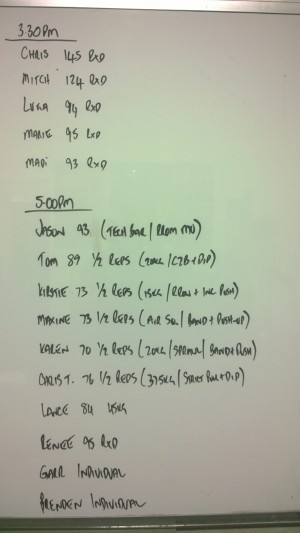 3:30pm
CHRIS 145 RXD
MITCH 124 RXD
LUKA 94 RXD
MARIE 95 RXD
MADI 93 RXD
5:00pm
JASON 93 (TECH BAR / RROM MU)
TOM 89 1/2 REPS (20KG / C2B + DIP)
KIRSTIE 73 1/2 REPS (15KG / RROW + INC PUSH)
MAXINE 73 1/2 REPS (AIR SQ. / BAND + PUSH-UP)
KAREN 70 1/2 REPS (20KG / SPRAWL / BAND + PUSH)
CHRIS T. 76 1/2 REPS (37.5KG / STRICT PULL + DIP)
LANCE 84 45KG
RENEE 95 RXD
GARR INDIVIDUAL
BRENDEN INDIVIDUAL